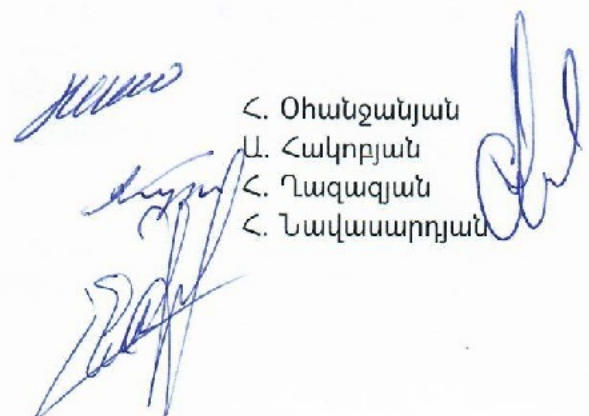 Հ. Օհանջանյան
Ա. Հակոբյան
Հ. Ղազազյան
Հ. Նավասարդյան